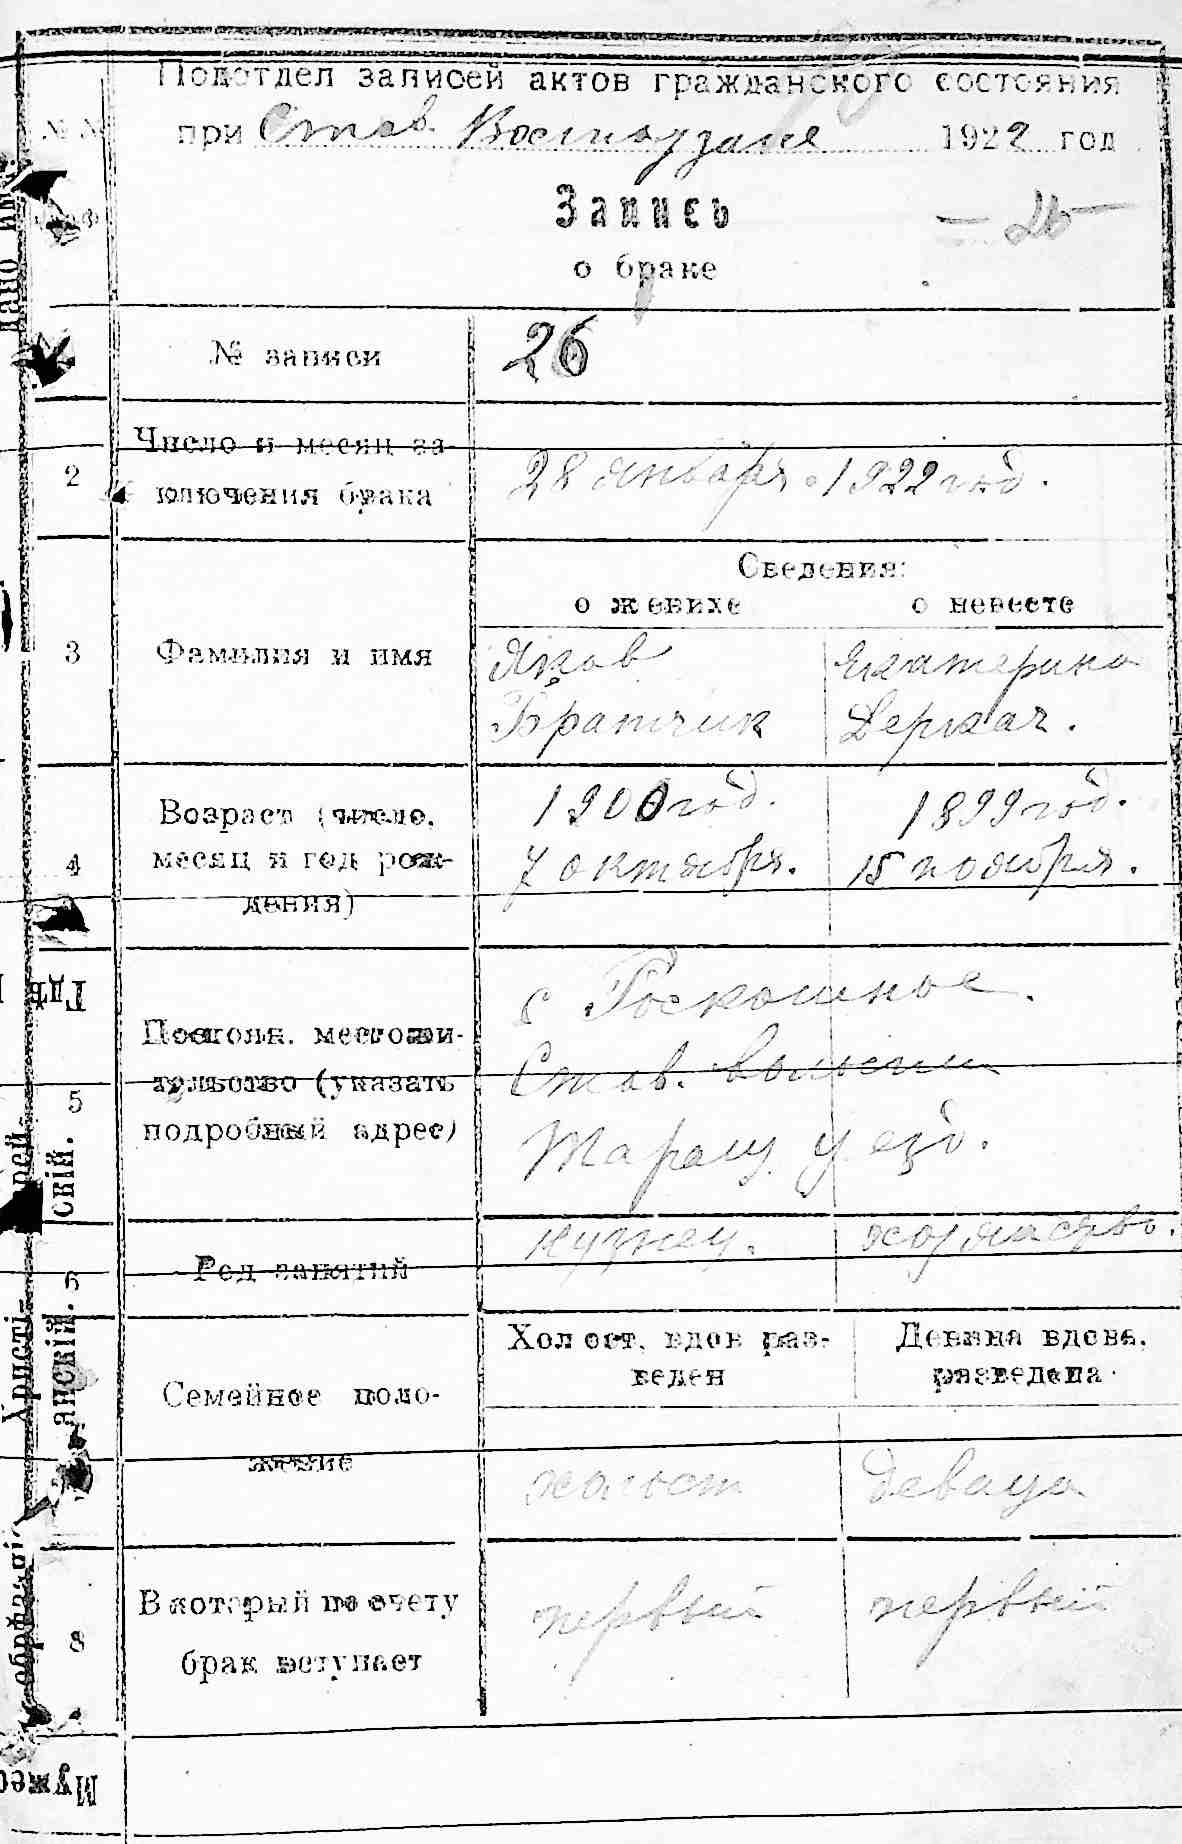 Подотдел записей актов гражданского состояния
№ №
при Став. 1922 год
Запись
— 26 —
о браке
№ записи 26
2 Число и месяц за-
ключения брака
28 января 1922 год.
Сведения:
о женихе о невесте
3 Фамилия и имя
Яков Екатерина
Братчик Деркач.
4 Возраст (число,
месяц и год рож-
дения)
1900 год. 1899 год.
7 октября. 15 ноября.
5 Постоян. местожи-
тельство (указать
подробный адрес)
с Роскошное.
Став. волости
Таращ. уезд.
6 Род занятий
кузнец.
Семейное поло-
жение
Холост, вдов раз-
веден
Девица вдова,
разведена
холост девица
8 В который по счету
брак вступает
первый первый
дано им
Гдѣ
Христі-
анскій.
скій.
Мужес